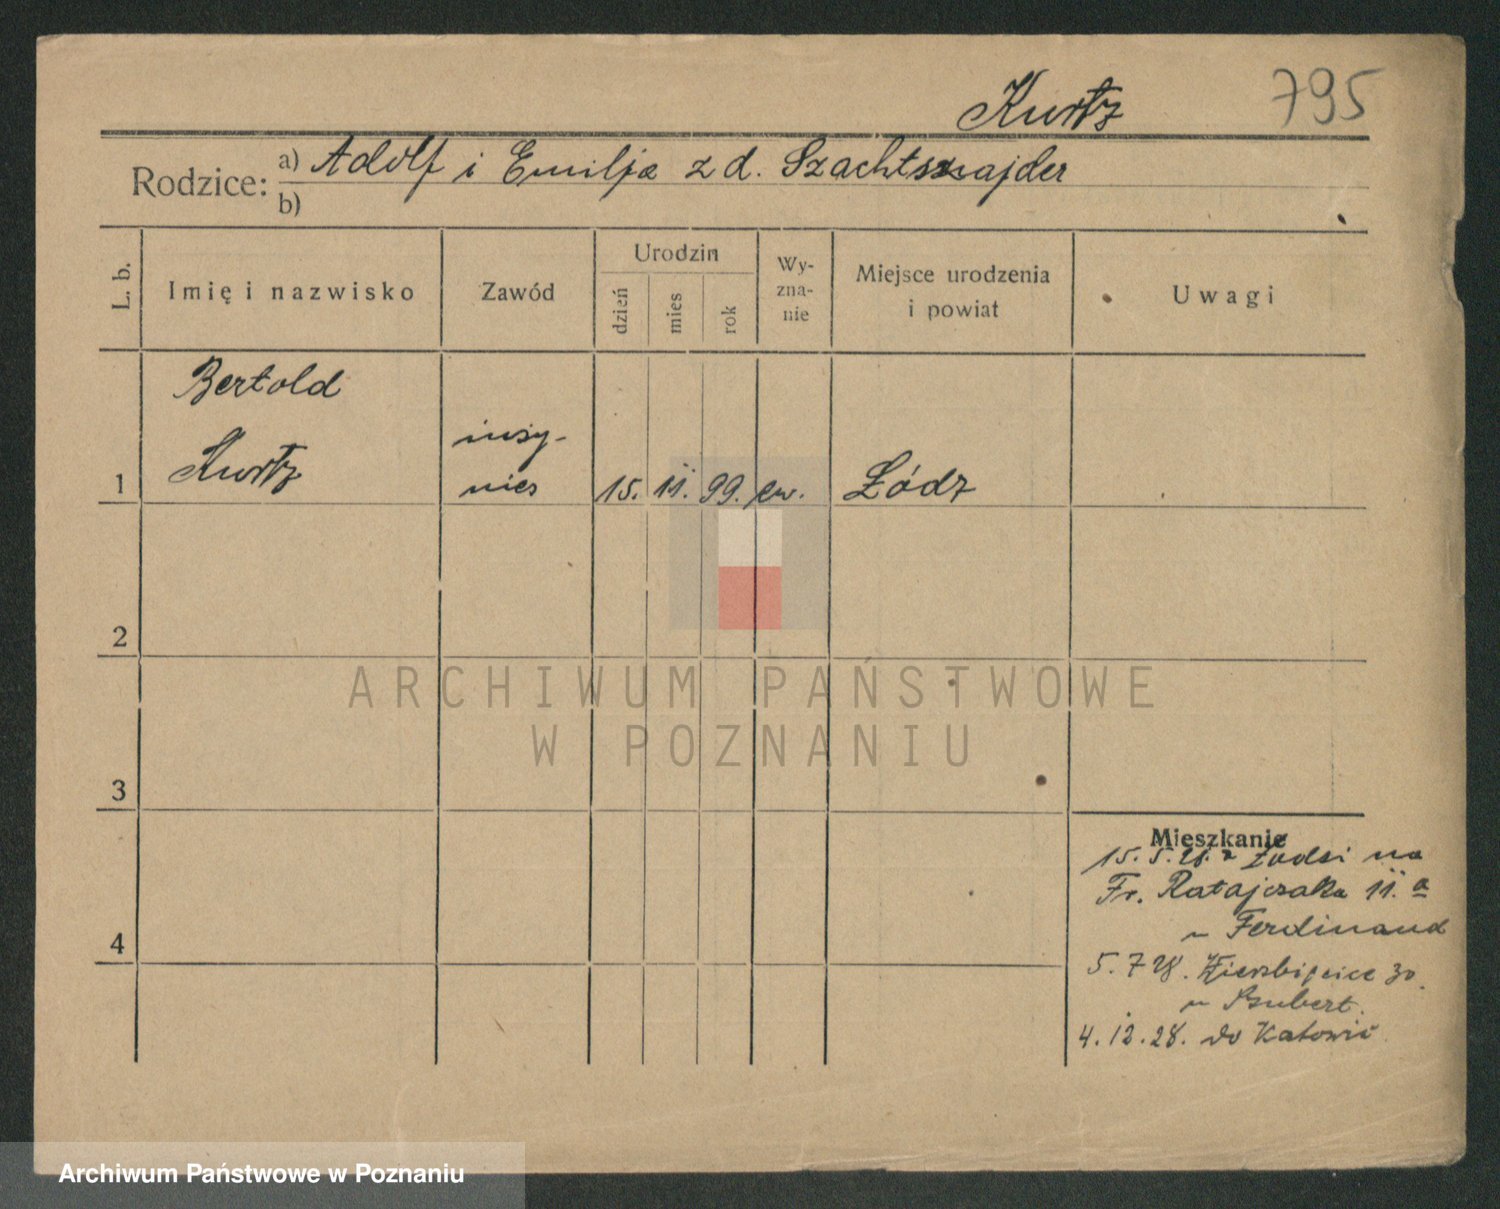 Kurtz 795
Rodzice: a) Adolf i Emilja z d. Szachtsznajder
b)
L. b. Imię i nazwisko Zawód Urodzin dzień mies rok Wy-zna-nie Miejsce urodzenia i powiat Uwagi
Bertold
Kurtz inży-
1 nier 15. 11. 99. ew. Łódz
2
3
4
Mieszkanie
15. 5. 28. z Łodzi na
Fr. Ratajczaka 11. a
u Ferdinand
5. 7 28. Wierzbięcice 30.
u
4. 12. 28. do Katowic
ARCHIWUM PAŃSTWOWE
W POZNANIU
Archiwum Państwowe w Poznaniu